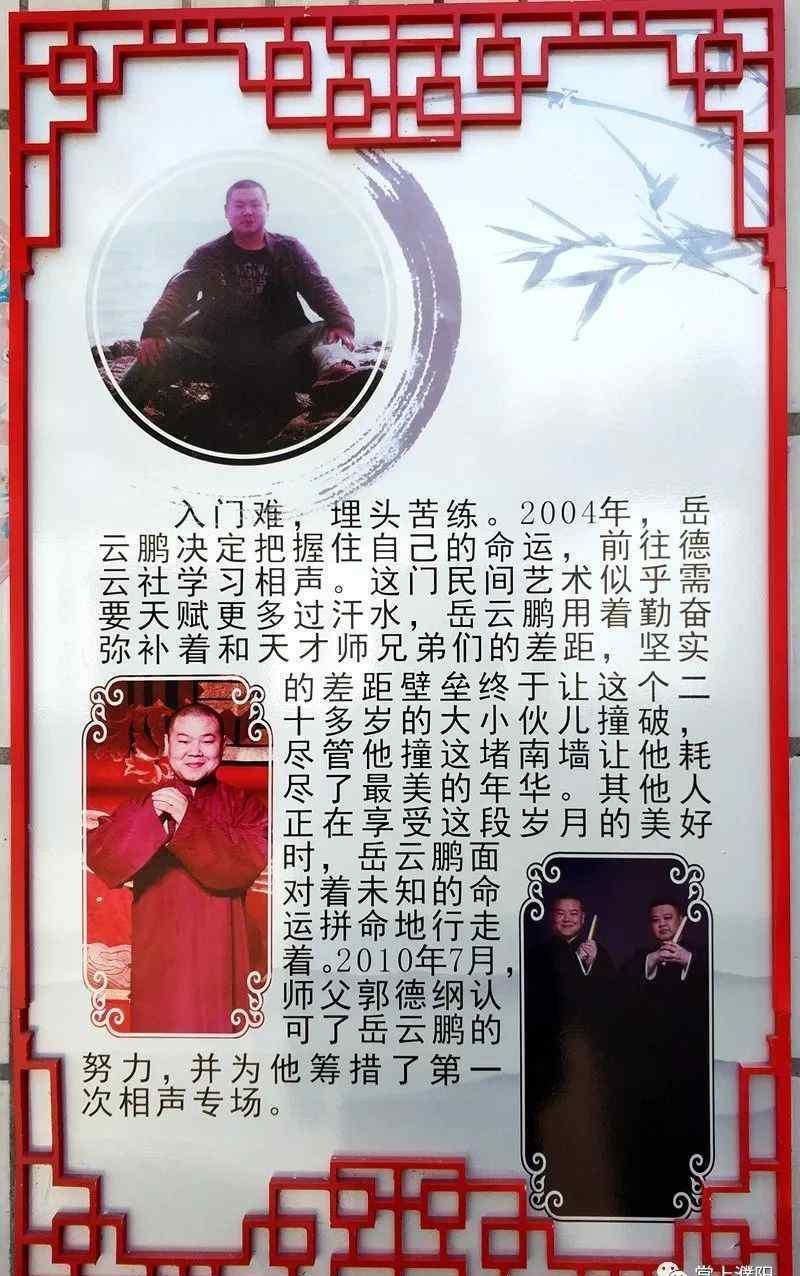 入门难，埋头苦练。2004年，岳
云鹏决定把握住自己的命运，前往德
云社学习相声。这门民间艺术似乎需
要天赋更多过汗水，岳云鹏用着勤奋
弥补着和天才师兄弟们的差距，坚实
的差距壁垒终于让这个二
十多岁的大小伙儿撞破，
尽管他撞这堵南墙让他耗
尽了最美的年华。其他人
正在享受这段岁月的美好
时，岳云鹏面
对着未知的命
运拼命地行走
着。2010年7月，
师父郭德纲认
可了岳云鹏的
努力，并为他筹措了第一
次相声专场。
掌上濮阳